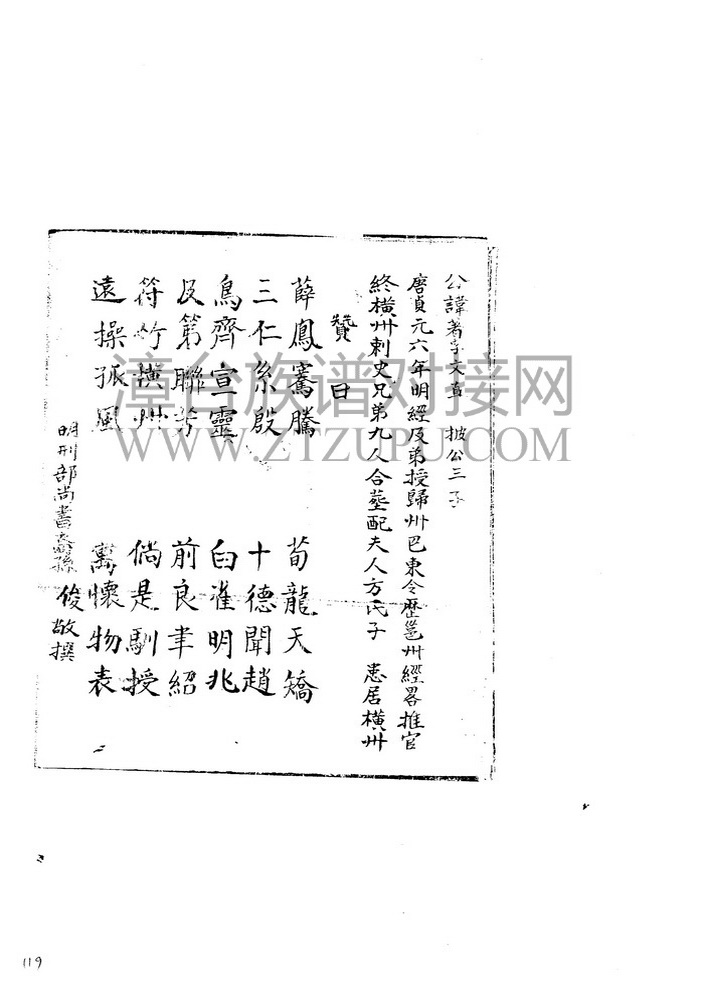 公諱著字文 披公三子
唐貞元六年明經及弟授歸州巴東令歷邕州經畧推官
終橫州刺史兄弟九人合墓配夫人方氏子 惎居橫州
贊曰
薛鳳騫騰 荀龍天矯
三仁系殷 十德聞趙
鳥齊宣靈 白雀明兆
及第聯芳 前良聿紹
符竹橫州 倘是馴授
遠操孤風 萬懷物表
明刑部尚書裔孫 俊敬撰
漳台族谱对接网
WWW.ZTZUPU.COM
119